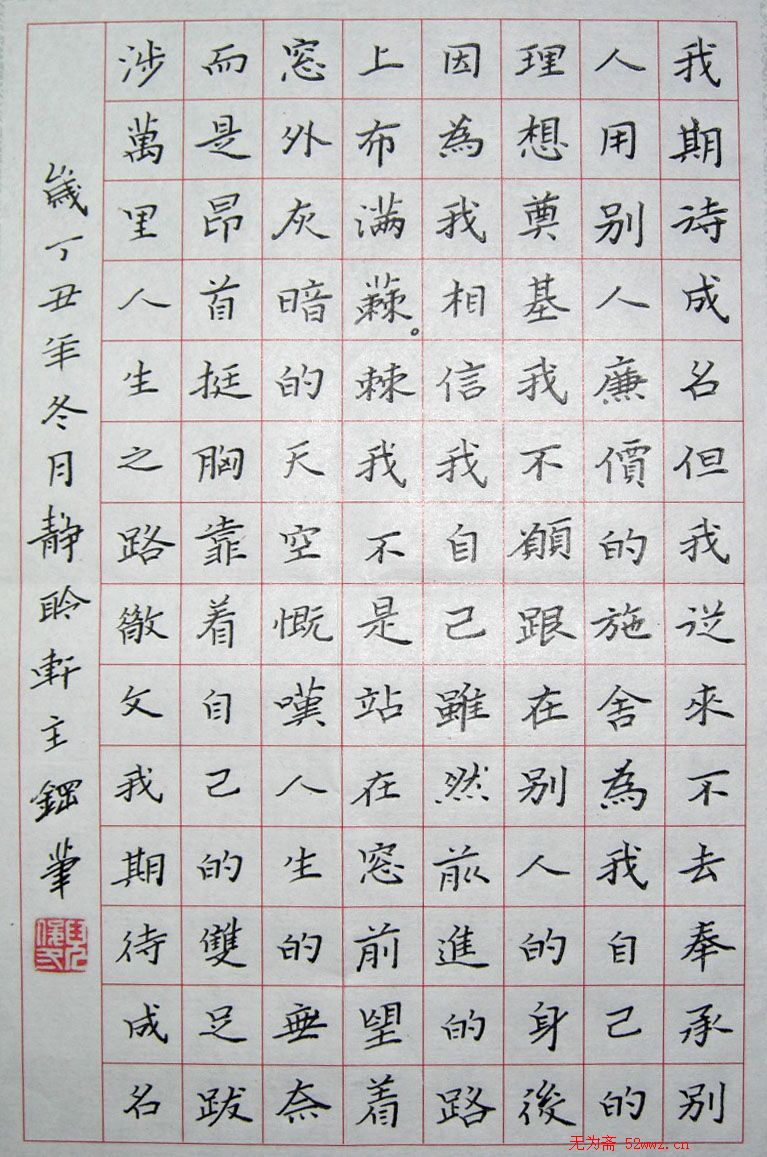 我期待成名但我從來不去奉承别
人用别人廉價的施舍為我自己的
理想奠基我不願跟在别人的身後
因為我相信我自己雖然前進的路
上布满蕀。棘我不是站在窓前望着
窓外灰暗的天空慨嘆人生的無奈
而是昂首挺胸靠着自己的雙足跋
涉萬里人生之路徹文我期待成名
歲丁丑年冬月靜聆軒主鋼筆
无为斋 52wwz.cn